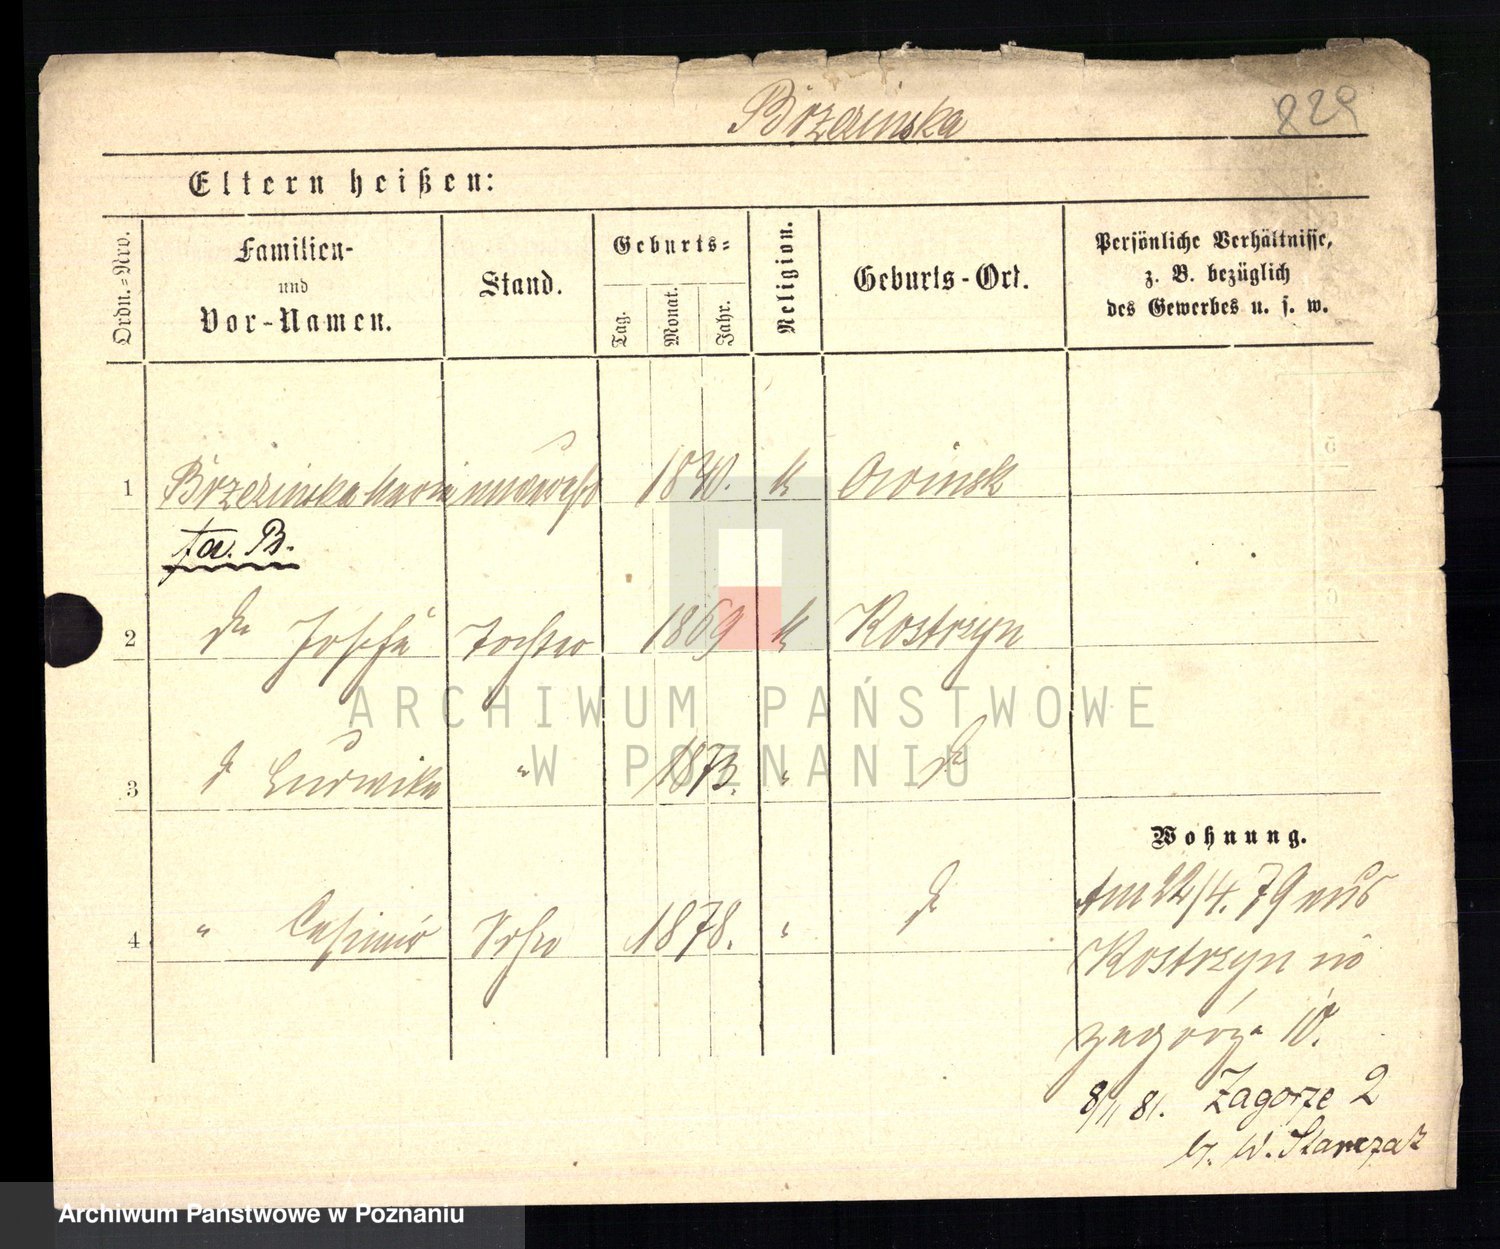 Brzezinska
229
Eltern heißen:
Ordn.-Nro.
Familien-
und
Vor-Namen.
Stand.
Geburts-
Tag.
Monat.
Jahr.
Religion.
Geburts-Ort.
Persönliche Verhältnisse,
z. B. bezüglich
des Gewerbes u. s. w.
1 Brzezinska Maria 1840. k Owinsk
fa. B.
2 do Josepha Tochter 1869 k Kostrzyn
3 do Ludwika " 1873. " do
Wohnung.
4 " Casimir Sohn 1878. " do
Am 22/4. 79 aus
Kostrzyn
Zagorze 10.
8/11 81. Zagorze 2
b. W. Starczak
ARCHIWUM PAŃSTWOWE
W POZNANIU
Archiwum Państwowe w Poznaniu